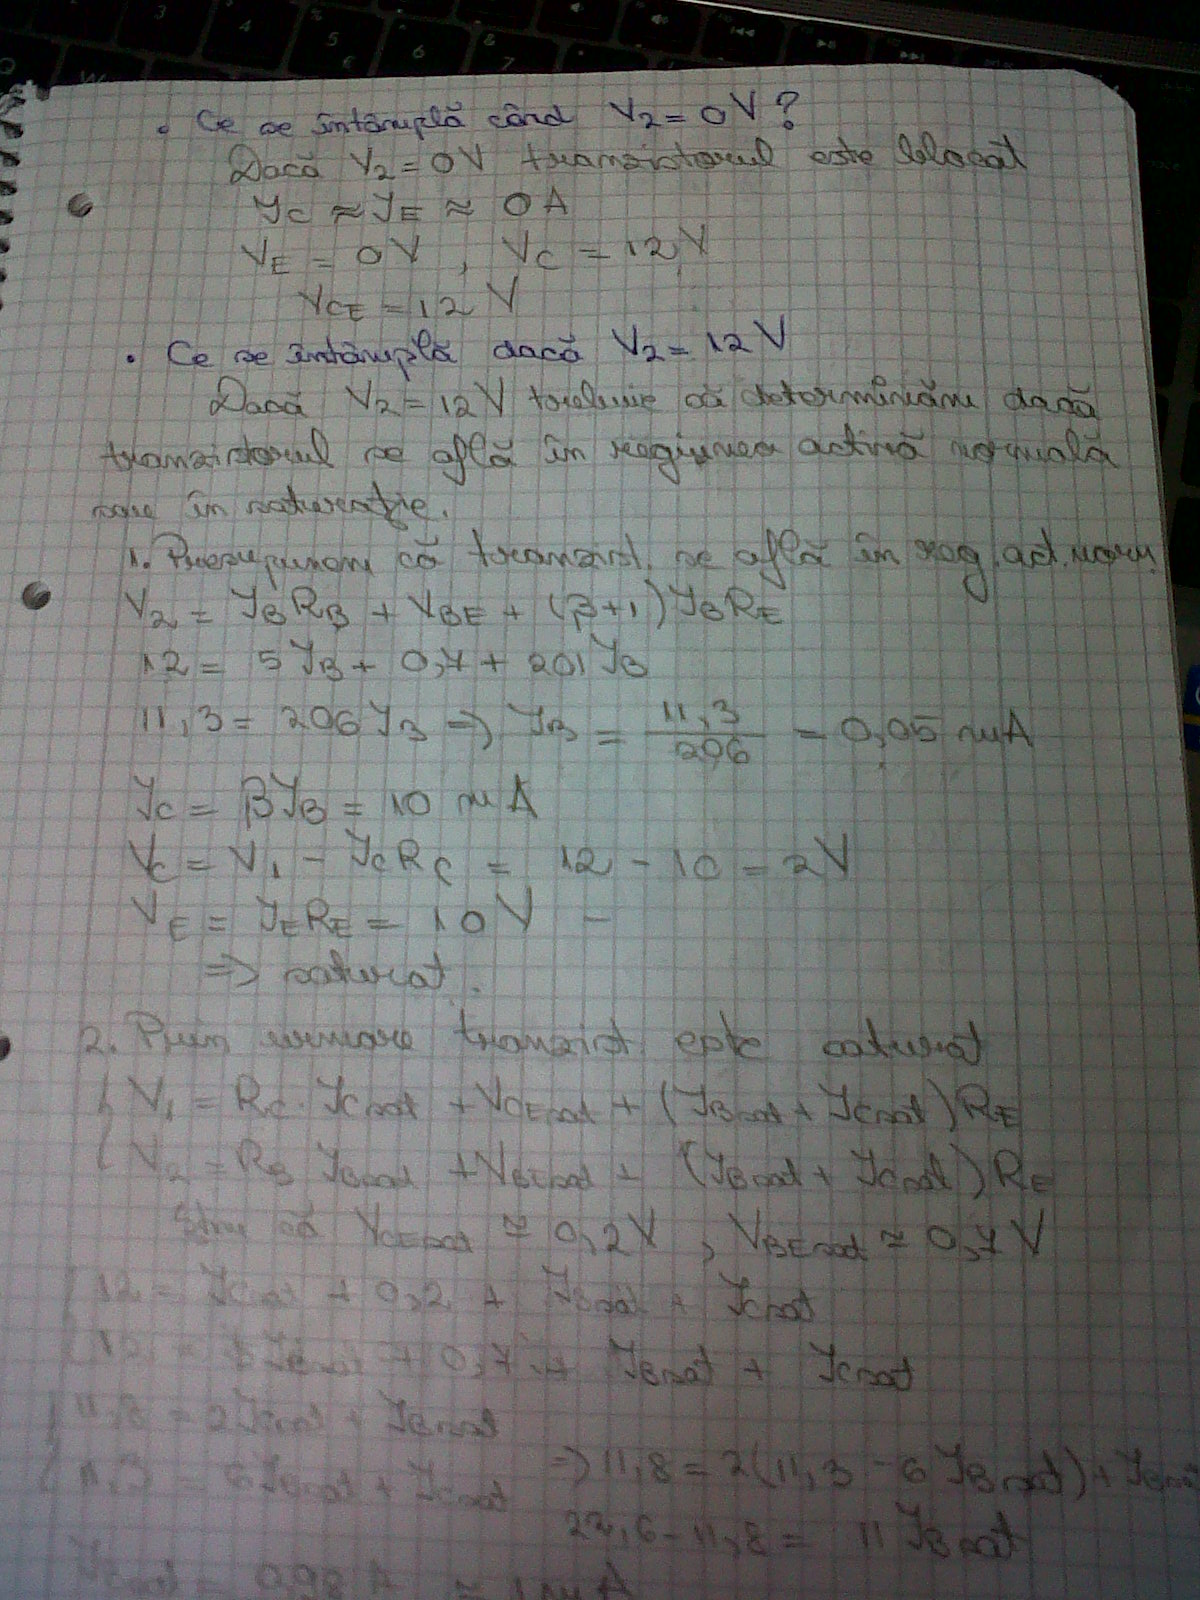 • Ce se întâmplă când V₂ = 0V?
Dacă V₂ = 0V tranzistorul este blocat
I_C ≈ I_E ≈ 0A
V_E = 0V, V_C = 12V
V_CE = 12V
• Ce se întâmplă dacă V₂ = 12V
Dacă V₂ = 12V trebuie să determinăm dacă
tranzistorul se află în regiunea activă normală
sau în saturație.
1. Presupunem că tranzist. se află în reg. act. norm.
V₂ = I_B R_B + V_BE + (β+1) I_B R_E
12 = 5 I_B + 0,7 + 201 I_B
11,3 = 206 I_B => I_B = 11,3/206 = 0,05 mA
I_C = β I_B = 10 mA
V_C = V₁ - I_C R_C = 12 - 10 = 2V
V_E = I_E R_E = 10V -
=> saturat.
2. Prin urmare tranzist este saturat
{ V₁ = R_C · I_Csat + V_CEsat + (I_Bsat + I_Csat) R_E
{ V₂ = R_B I_Bsat + V_BEsat + (I_Bsat + I_Csat) R_E
Știm că V_CEsat ≈ 0,2V, V_BEsat ≈ 0,7V
{ 12 = I_Csat + 0,2 + I_Bsat + I_Csat
{ 12 = 5 I_Bsat + 0,7 + I_Bsat + I_Csat
{ 11,8 = 2 I_Csat + I_Bsat
{ 11,3 = 6 I_Bsat + I_Csat => 11,8 = 2(11,3 - 6 I_Bsat) + I_Bsat
22,6 - 11,8 = 11 I_Bsat
I_Bsat = 0,98 A ≈ 1 mA